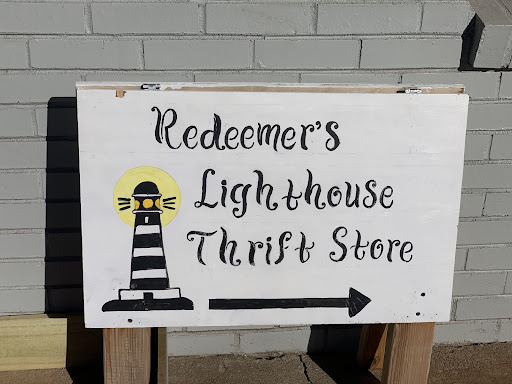 Redeemer's
Lighthouse
Thrift Store